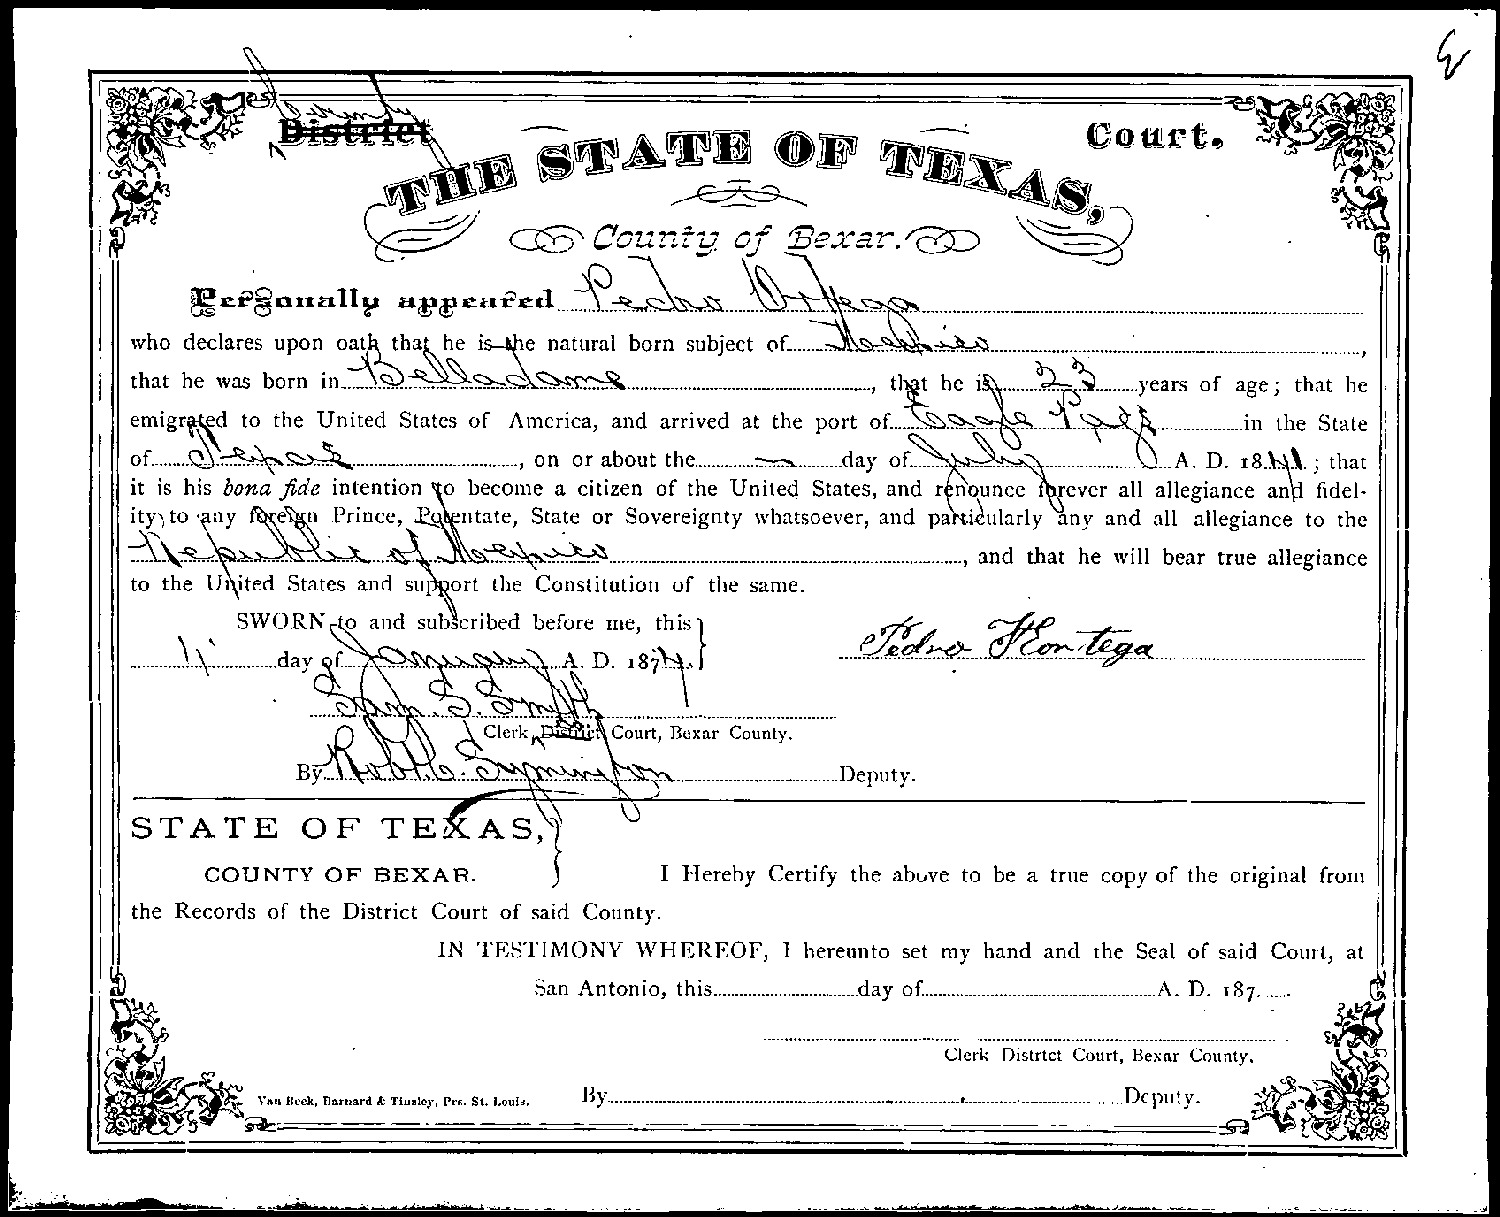 County
District Court.
THE STATE OF TEXAS,
County of Bexar.
Personally appeared Pedro Ortega
who declares upon oath that he is the natural born subject of Mexico,
that he was born in Belladama, that he is 23 years of age; that he
emigrated to the United States of America, and arrived at the port of Eagle Pass in the State
of Texas, on or about the — day of July A. D. 18; that
it is his bona fide intention to become a citizen of the United States, and renounce forever all allegiance and fidel-
ity to any foreign Prince, Potentate, State or Sovereignty whatsoever, and particularly any and all allegiance to the
Republic of Mexico, and that he will bear true allegiance
to the United States and support the Constitution of the same.
SWORN to and subscribed before me, this
day of January A. D. 1874. Pedro Hontega
Sam. S. Smith
Clerk District Court, Bexar County.
By Robt. C. Symington Deputy.
STATE OF TEXAS,
COUNTY OF BEXAR. I Hereby Certify the above to be a true copy of the original from
the Records of the District Court of said County.
IN TESTIMONY WHEREOF, I hereunto set my hand and the Seal of said Court, at
San Antonio, this day of A. D. 187
Clerk Distrtct Court, Bexar County.
Van Beek, Barnard & Tinsley, Prs. St. Louis. By Deputy.